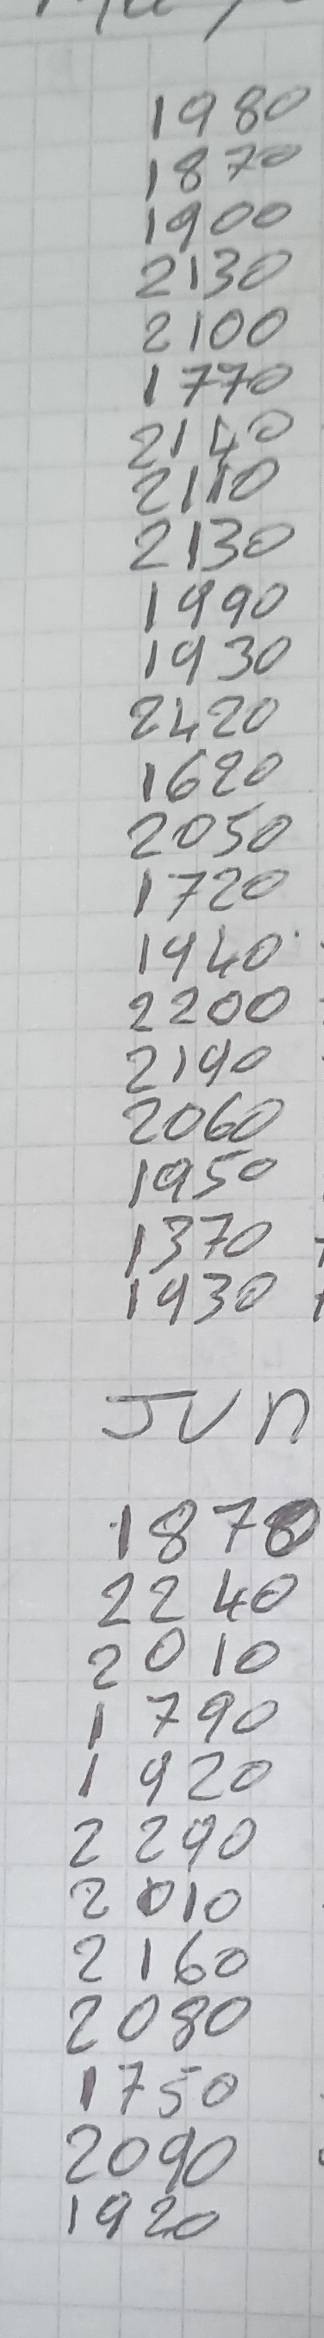 1980
1870
1900
2130
2100
1770
2140
2110
2130
1990
1930
2420
1620
2050
1720
1940
2200
2190
2060
1950
1370
1930
JUn
1870
2240
2010
1790
1920
2290
2010
2160
2080
1750
2090
1920